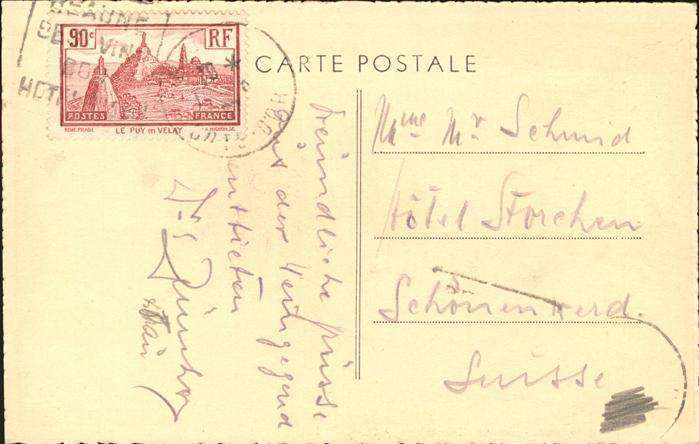 BEAUNE
SES VIN
HOT
90c RF
POSTES FRANCE
LE PUY en VELAY
CÔTE-D'OR
CARTE POSTALE
Freundliche Grüsse
aus der Weingegend
entbieten
Mme Mr Schmid
Hôtel Storchen
Schönenwerd.
Suisse